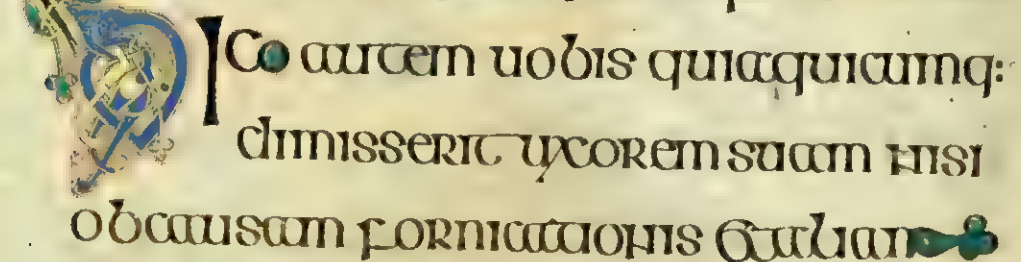 DICo autem uobis quiaquicumq:
dimisserit uxorem suam nisi
obcausam fornicationis &alian